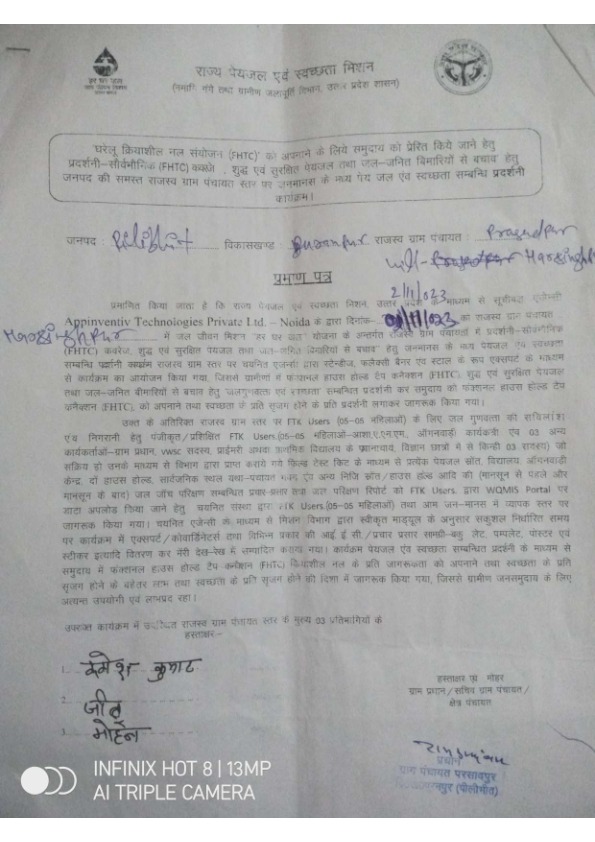 राज्य पेयजल एवं स्वच्छता मिशन
(नमामि गंगे तथा ग्रामीण जलापूर्ति विभाग, उत्तर प्रदेश शासन)
"घरेलू क्रियाशील नल संयोजन (FHTC)" को अपनाने के लिये समुदाय को प्रेरित किये जाने हेतु
प्रदर्शनी–सार्वभौमिक (FHTC) कवरेज, शुद्ध एवं सुरक्षित पेयजल तथा जल–जनित बिमारियों से बचाव हेतु
जनपद की समस्त राजस्व ग्राम पंचायत स्तर पर जनमानस के मध्य पेय जल एंव स्वच्छता सम्बन्धि प्रदर्शनी
कार्यक्रम।
जनपद : Pilibhit विकासखण्ड : Puranpur राजस्व ग्राम पंचायत :
प्रमाण पत्र
प्रमाणित किया जाता है कि राज्य पेयजल एवं स्वच्छता मिशन, उत्तर प्रदेश के माध्यम से सूचीबद्ध एजेन्सी
Appinventiv Technologies Private Ltd. – Noida के द्वारा दिनांक– का राजस्व ग्राम पंचायत
में जल जीवन मिशन "हर घर जल" योजना के अन्तर्गत राजस्व ग्राम पंचायतों में प्रदर्शनी–सार्वभौमिक
(FHTC) कवरेज, शुद्ध एवं सुरक्षित पेयजल तथा जल–जनित बिमारियों से बचाव हेतु जनमानस के मध्य पेयजल एंव स्वच्छता
सम्बन्धि प्रदर्शनी राजस्व ग्राम स्तर पर चयनित एजेन्सी द्वारा स्टेन्डीज, फलेक्सी बैनर एंव स्टाल के रूप एक्सपर्ट के माध्यम
से कार्यक्रम का आयोजन किया गया, जिसमें ग्रामीणों में फंक्शनल हाउस होल्ड टेप कनेक्शन (FHTC), शुद्ध एवं सुरक्षित पेयजल
तथा जल–जनित बीमारियों से बचाव हेतु सम्बन्धित प्रदर्शनी कर समुदाय को फंक्शनल हाउस होल्ड टेप
कनैक्शन (FHTC), को अपनाने तथा स्वच्छता के प्रति सृजग होने के प्रति प्रदर्शनी लगाकर जागरूक किया गया।
उक्त के अतिरिक्त राजस्व ग्राम स्तर पर FTK Users (05–05 महिलाओं) के लिए जल गुणवत्ता को
एंव निगरानी हेतु पंजीकृत/प्रशिक्षित FTK Users.(05–05 महिलाओं–आशा,ए.एन.एम., ऑगनवाडी कार्यकत्री एंव 03 अन्य
कार्यकर्ताओं–ग्राम प्रधान, vwsc सदस्य, प्राईमरी अथवा के प्रधानाचार्य, विज्ञान छात्रों में से किन्ही 03 सदस्य) जो
सक्रिय हो उनके माध्यम से विभाग द्वारा प्राप्त कराये गये फिल्ड टेस्ट किट के माध्यम से प्रत्येक पेयजल स्रोत, विद्यालय, ऑगनवाडी
केन्द्र, दों हाउस होल्ड, सार्वजनिक स्थल यथा–पंचायत भवन एंव अन्य निजि स्रोत/हाउस होल्ड आदि की (मानसून से पहले और
मानसून के बाद) जल जॉच परिक्षण सम्बन्धित प्रचार–प्रसार तथा जल परिक्षण रिपोर्ट को FTK Users. द्वारा WQMIS Portal पर
डाटा अपलोड किया जाने हेतु चयनित संस्था द्वारा FTK Users.(05–05 महिलाओं) तथा आम जन–मानस में व्यापक स्तर पर
जागरूक किया गया। चयनित एजेन्सी के माध्यम से मिशन विभाग द्वारा स्वीकृत माड्यूल के अनुसार सकुशल निर्धारित समय
पर कार्यक्रम में एक्सपर्ट/कोवार्डिनेटर्स तथा विभिन्न प्रकार की आई ई सी./प्रचार प्रसार सामग्री– लेट, पम्पलेट, पोस्टर एवं
स्टीकर इत्यादि वितरण कर मेरी देख–रेख में सम्पादित कराया गया। कार्यक्रम पेयजल एंव स्वच्छता सम्बन्धित प्रदर्शनी के माध्यम से
समुदाय में फंक्शनल हाउस होल्ड टैप कनैक्शन (FHTC) क्रियाशील नल के प्रति जागरूकता को अपनाने तथा स्वच्छता के प्रति
सृजग होने के बेहतर लाभ तथा स्वच्छता के प्रति सृजग होने की दिशा में जागरूक किया गया, जिससे ग्रामीण जनसमुदाय के लिए
अत्यन्त उपयोगी एवं लाभप्रद रहा।
उपरक्त कार्यक्रम में उपस्थित राजस्व ग्राम पंचायत स्तर के मुख्य 03 प्रतिभागियों के
हस्ताक्षर:–
1. रमेश कुमार
2. जीतू
3. मोहन
हस्ताक्षर एवं मोहर
ग्राम प्रधान/सचिव ग्राम पंचायत/
क्षेत्र पंचायत
प्रधान
ग्राम पंचायत परसादपुर
(पीलीभीत)
INFINIX HOT 8 | 13MP
AI TRIPLE CAMERA